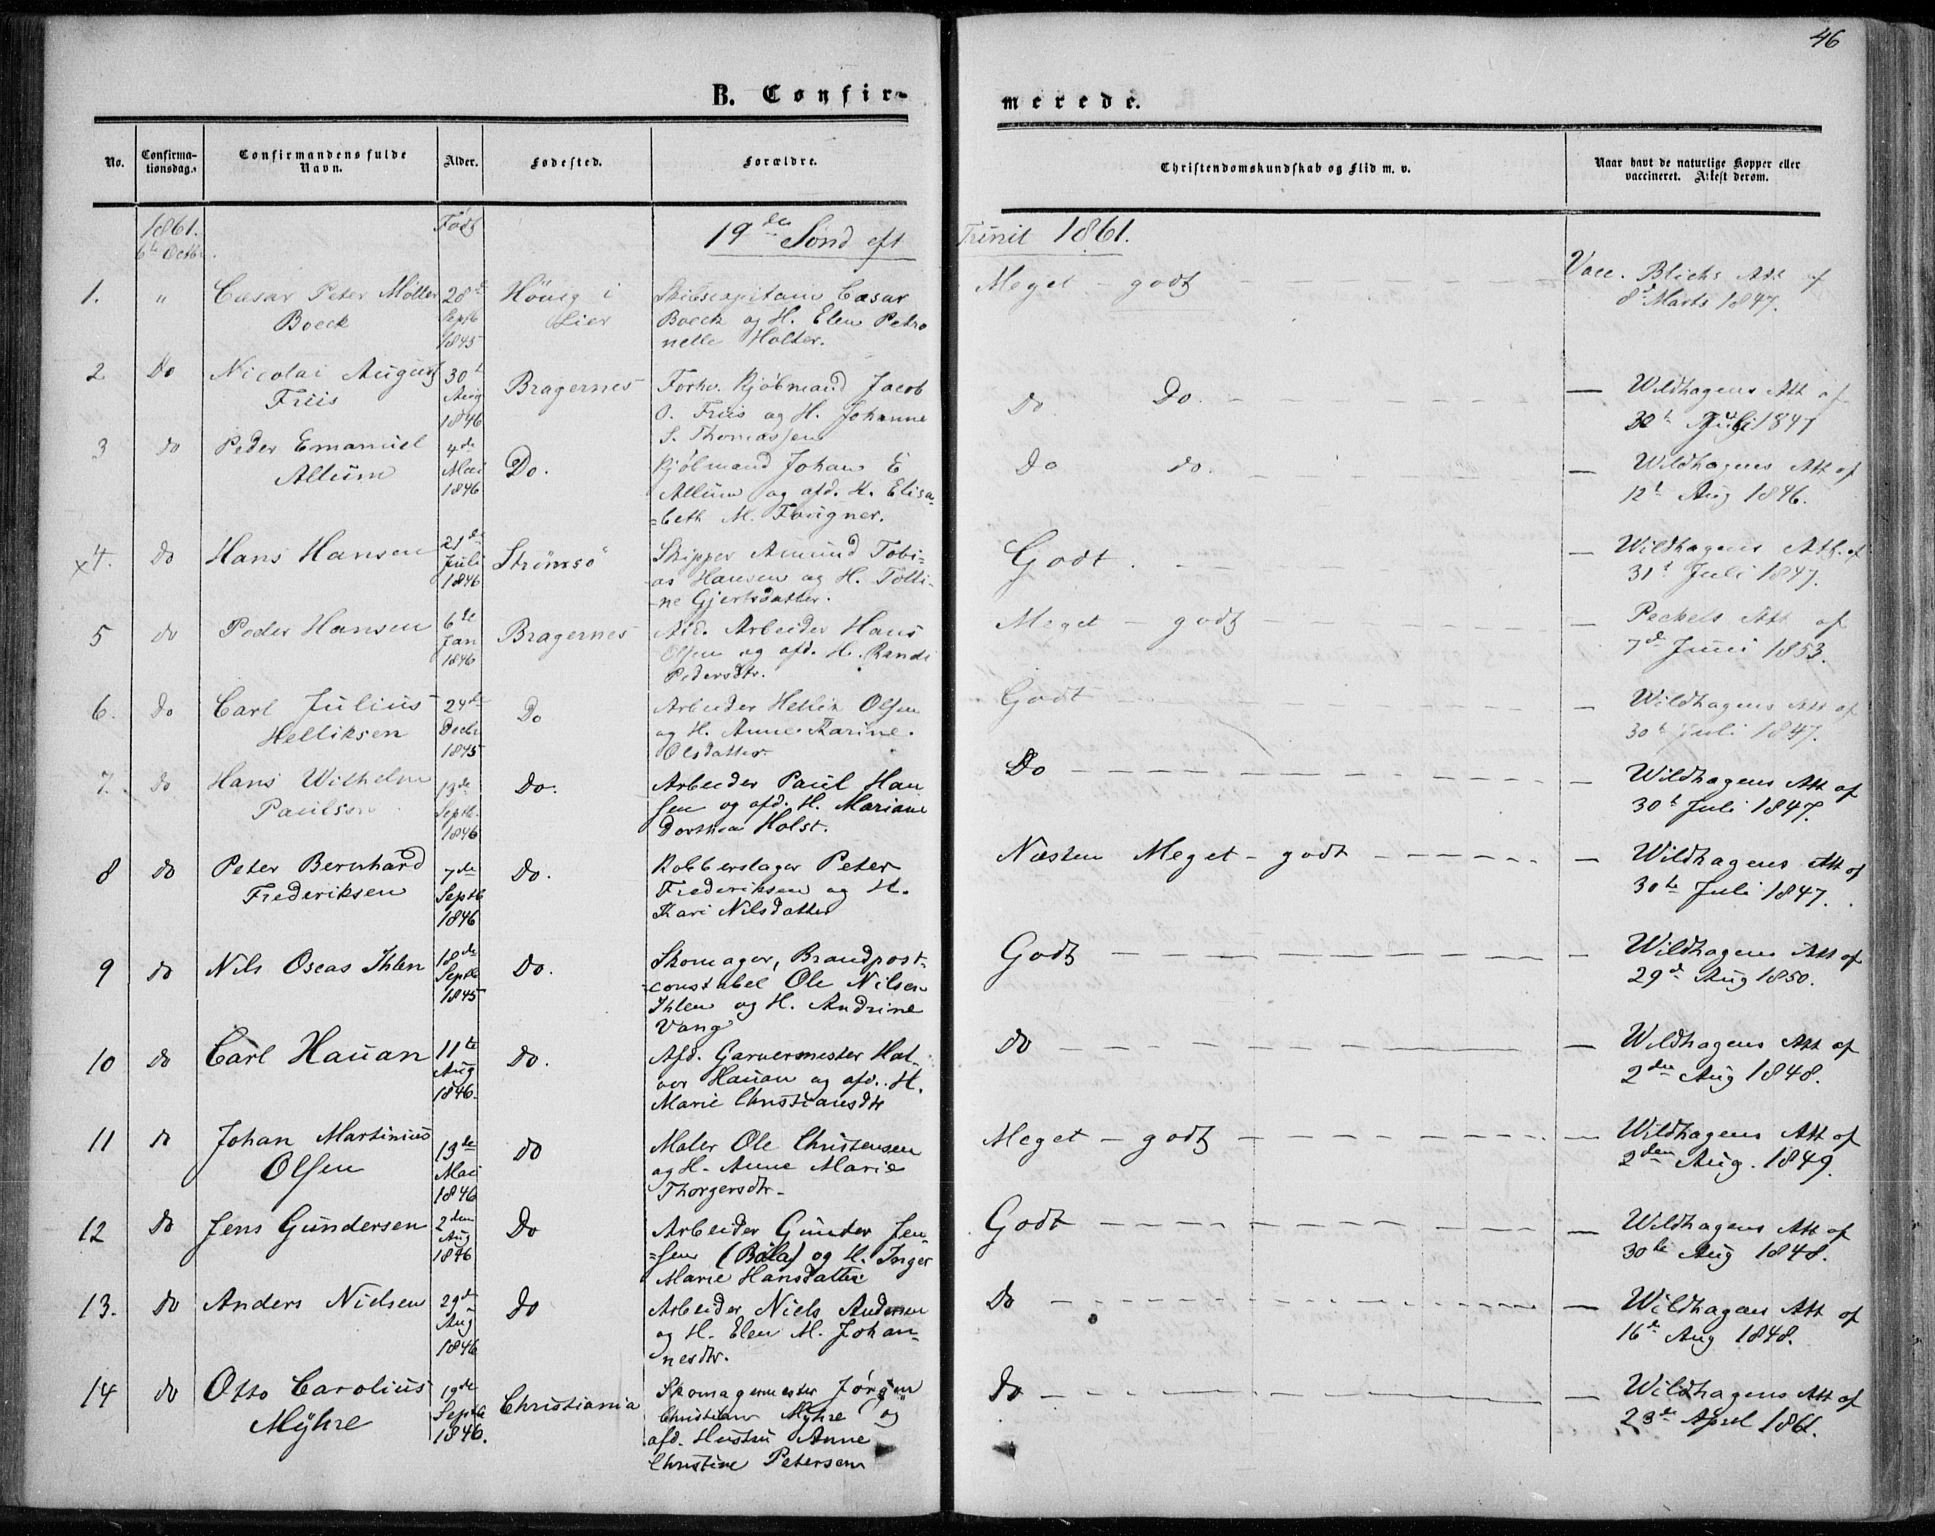 46
B. Confir-
merede.
No.
Confirma-
tionsdag.
Confirmandens fulde
Navn.
Alder.
Fødested.
Forældre.
Christendomskundskab og Flid m. v.
Naar havt de naturlige Kopper eller
vaccineret. Attest derom.
1861.
6te Octbr.
Født
19de Sønd eft
Trinit 1861.
1. " Cæsar Peter Møller
Boeck
28de
Septb
1845
Høneg i
Lier
Skibscapitain Cæsar
Boeck og H. Elen Petro
nelle Holter.
Meget - godt
Vacc. Blichs Att of
8d Marts 1847.
2 Do Nicolai August
Friis
30t
Aug
1846
Bragernes
Forhv. Kjøbmand Jacob
O. Friis og H. Johanne
S. Thomassen
Do Do.
— Wildhagens Att of
30t Juli 1847
3 do Peder Emanuel
Allum
4de
Mai
1846
Do.
Kjøbmand Johan E
Allum og afd. H. Elisa-
=beth M. Fougner.
Do do.
— Wildhagens Att of
12t Aug 1846.
x4. do Hans Hansen
21de
Juli
1846
Strømsø
Skipper Amund Tobi-
as Hansen og H. Tolli-
-ne Gjertsdatter.
Godt.
— Wildhagens Att. of
31t Juli 1847.
5 do Peder Hansen
6te
Jan
1846
Bragernes
Afd. Arbeider Hans
Olsen og afd. H. Randi
Pedersdtr.
Meget - godt
— Peckels Att of
7d Juni 1853.
6. do Carl Julius
Helliksen
24de
Decbr
1845
Do
Arbeider Hellik Olsen
og H. Anne Karine
Olsdatter
Godt
— Wildhagens Att of
30t Juli 1847.
7. do Hans Wilhelm
Paulsen
13de
Septb.
1846
Do.
Arbeider Paul Han
sen og afd. H. Mariane
Dorthea Holst.
Do
— Wildhagens Att of
30t Juli 1847.
8 do Peter Bernhard
Frederiksen
7de
Septb
1846
Do.
Kobberslager Peter
Frederiksen og H.
Kari Nilsdatter
Næsten Meget - godt
— Wildhagens Att of
30te Juli 1847.
9 do Nils Oscas Ihlen
18de
Septb
1845
Do.
Skomager, Brandpost-
-constabel Ole Nilsen
Ihlen og H. Andrine
Vang
Godt
— Wildhagens Att of
29d Aug 1850.
10 do Carl Hauan
11te
Aug
1846.
Do.
Afd. Garvermester Hal-
vor Hauan og afd. H.
Marie Christiansdtr
do
— Wildhagens Att of
2den Aug 1848.
11 do Johan Martinius
Olsen
13de
Mai
1846
do
Maler Ole Christensen
og H. Anne Marie
Thorgersdtr-
Meget - godt
— Wildhagens Att of
2den Aug. 1849.
12 do Jens Gundersen
2den
Aug
1846
Do
Arbeider Gunder Jen-
=sen (Bøla) og H. Inger
Marie Hansdatter
Godt
— Wildhagens Att of
30te Aug 1848.
13. do Anders Nielsen
29d
Aug
1846
do
Arbeider Niels Andersen
og H. Elen M. Johan-
nesdtr.
Do
— Wildhagens Att of
16de Aug 1848.
14 do Otto Carolius
Myhre
19de
Septb
1846.
Christiania
Skomagermester Jørgen
Christian Myhre og
afd. Hustru Anne
Christine Petersen
do
— Wildhagens Att of
23de April 1861.